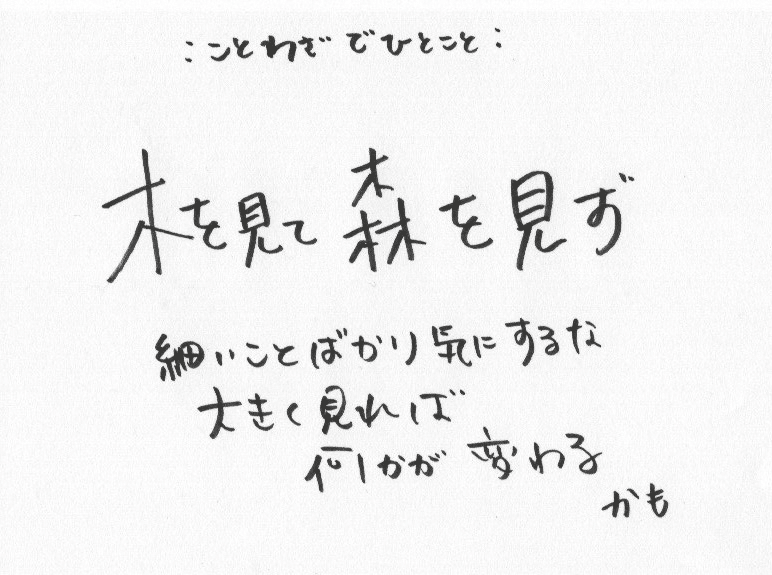 ：ことわざでひとこと：
木を見て森を見ず
細いことばかり気にするな
大きく見れば
何かが変わる
かも